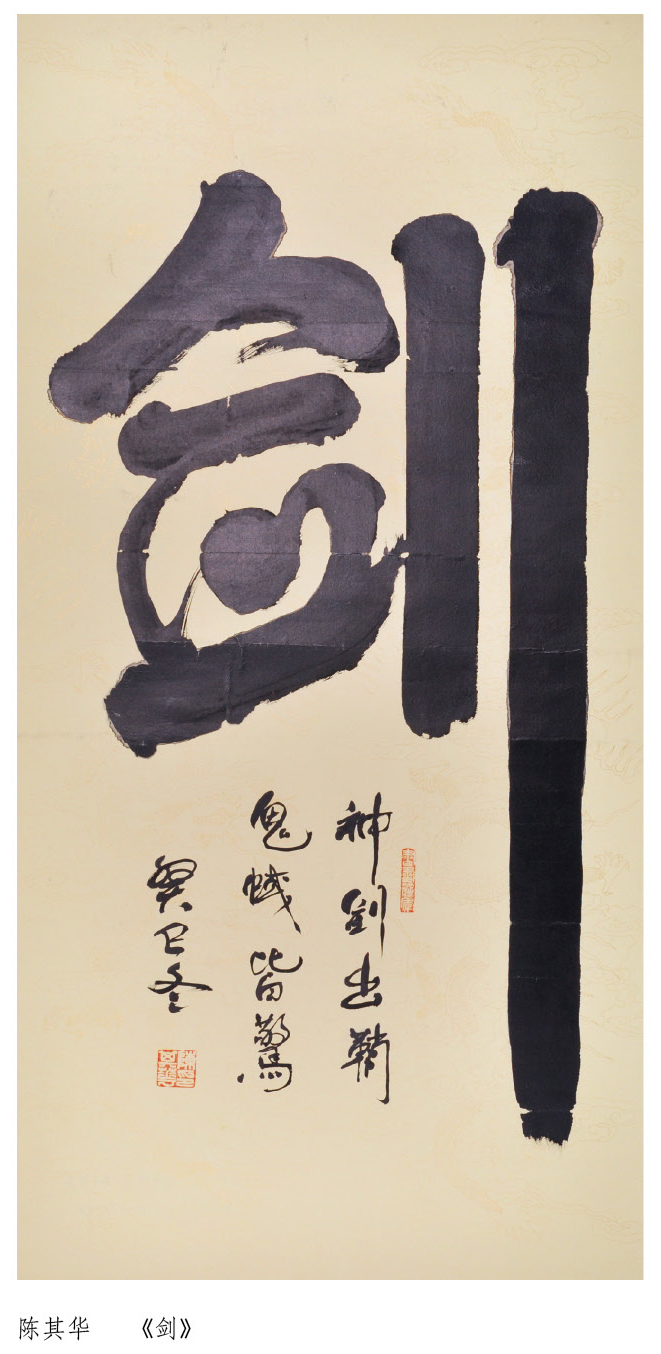 剑
神剑出鞘
鬼蜮皆惊
癸巳冬
陈其华 《剑》